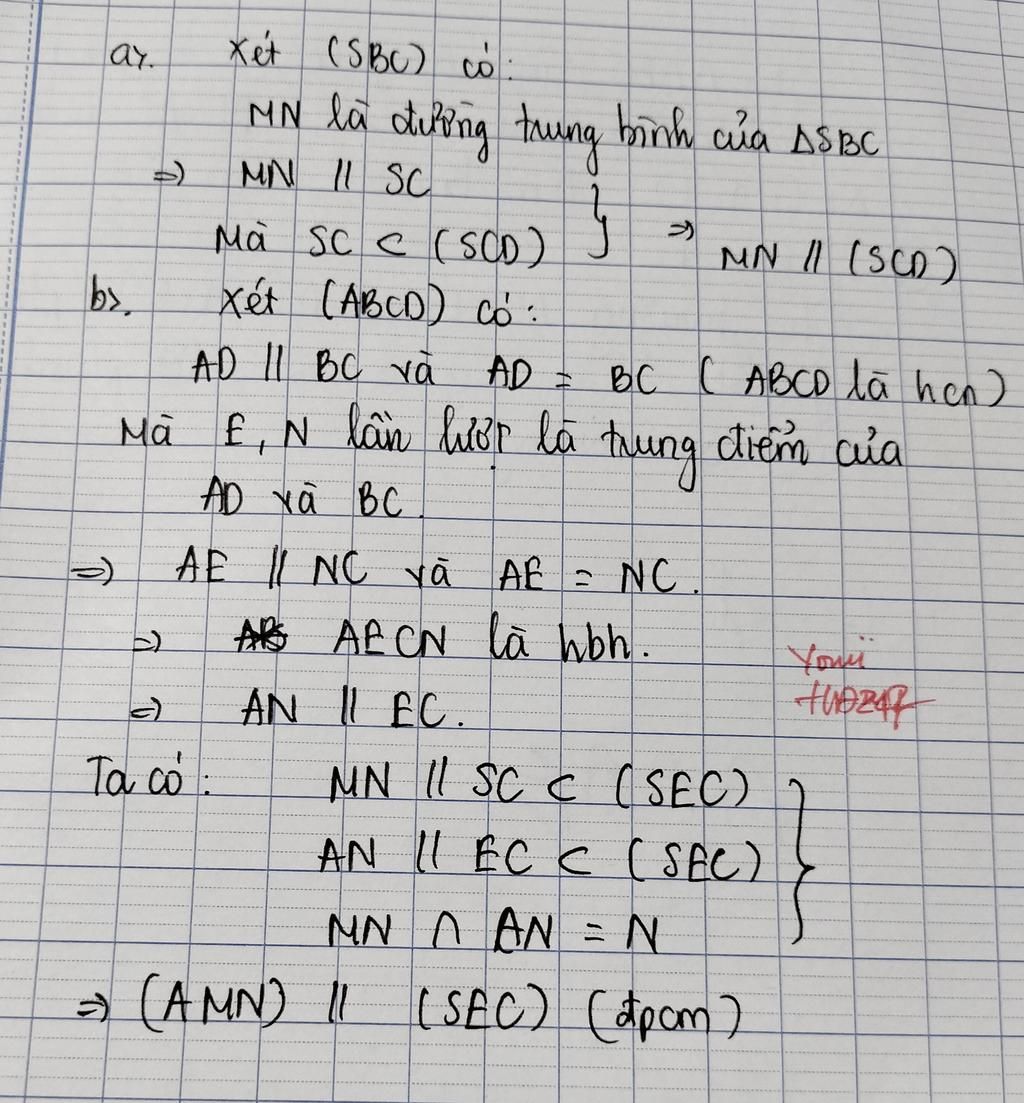 a>. Xét (SBC) có:
MN là đường trung bình của ΔSBC
=> MN // SC
Mà SC ⊂ (SCD) } => MN // (SCD)
b>. Xét (ABCD) có:
AD // BC và AD = BC ( ABCD là hcn)
Mà E, N lần lượt là trung điểm của
AD và BC.
=> AE // NC và AE = NC.
=> AECN là hbh.
=> AN // EC.
Ta có: MN // SC ⊂ (SEC)
AN // EC ⊂ (SEC) }
MN ∩ AN = N
=> (AMN) // (SEC) (đpcm)